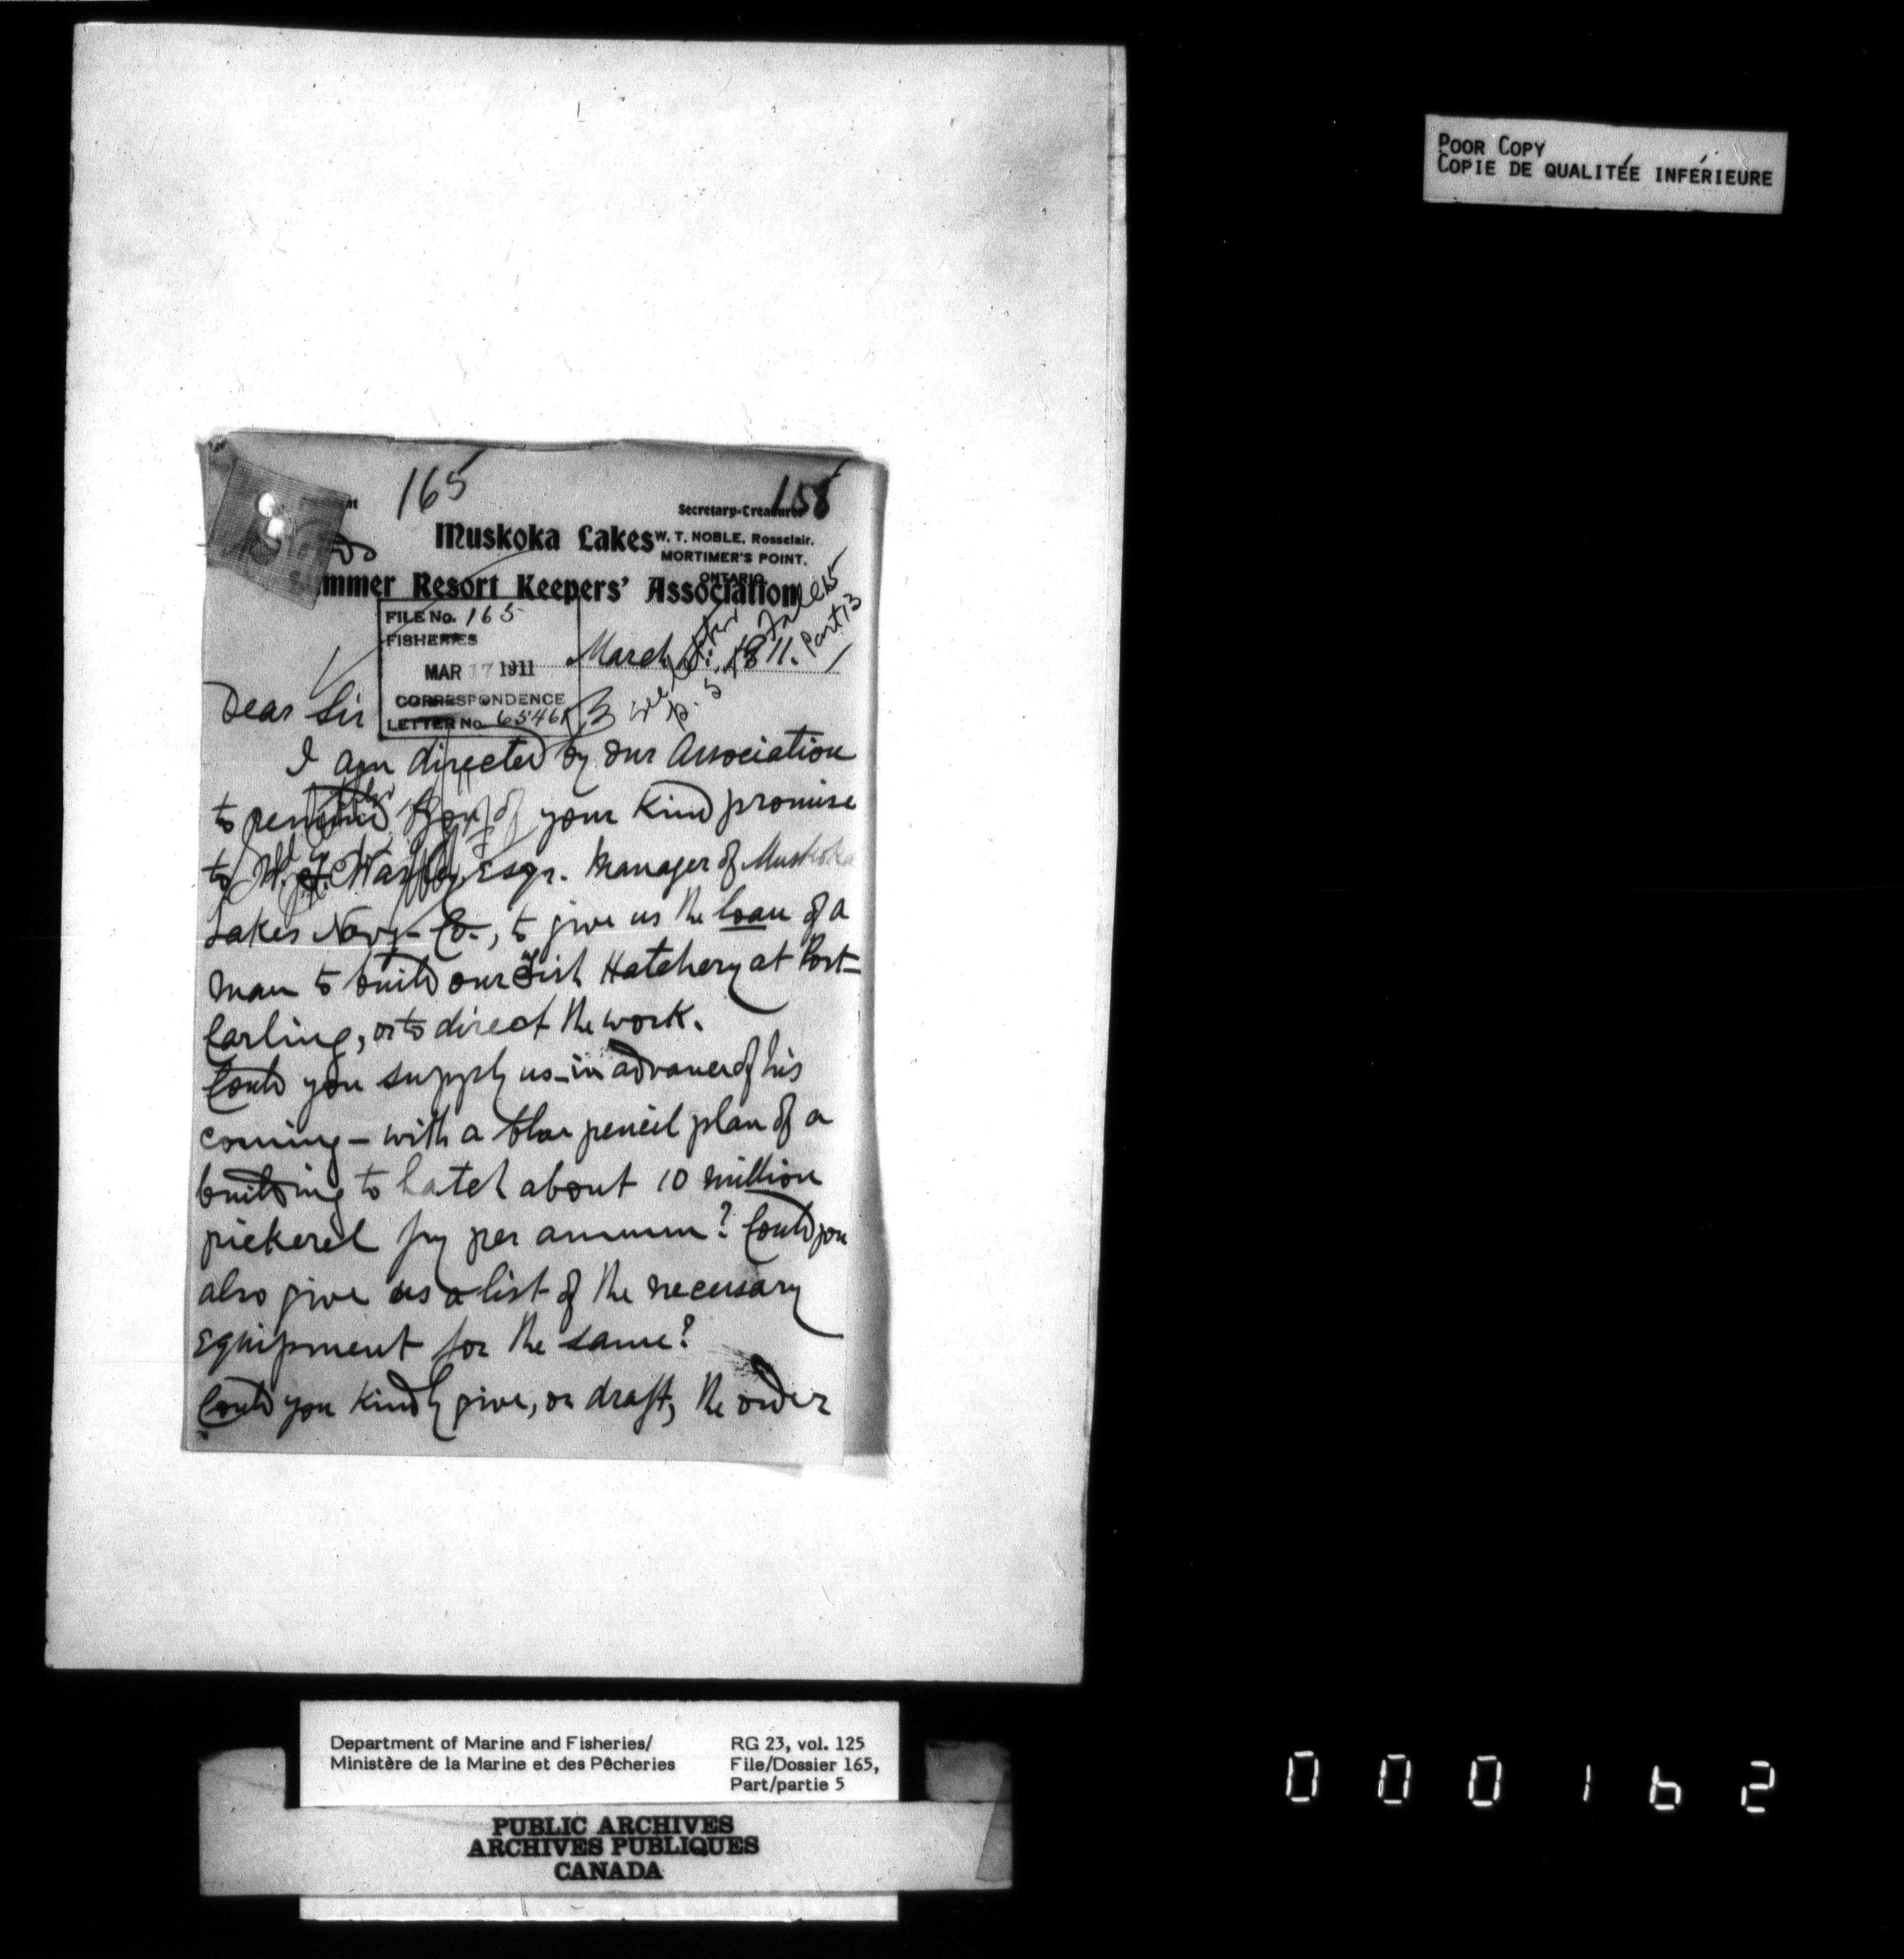 POOR COPY
COPIE DE QUALITÉE INFÉRIEURE
165
158
Secretary-Treasurer
Muskoka Lakes
W. T. NOBLE, Rossclair.
MORTIMER'S POINT.
ONTARIO
mmer Resort Keepers' Association
FILE No. 165
FISHERIES
MAR 17 1911
CORRESPONDENCE
LETTER No.
March 1911.
Part 13
p. 5
Dear Sir
I am directed by our Association
to remind you of your kind promise
to Esqr. Manager of Muskoka
Lakes Navg- Co-, to give us the loan of a
man to build our Fish Hatchery at Port-
Carling, or to direct the work.
Could you supply us - in advance of his
coming - with a blue pencil plan of a
building to hatch about 10 million
pickerel fry per annum? Could you
also give us a list of the necessary
Equipment for the same?
Could you kindly give, or draft, the order
Department of Marine and Fisheries/
Ministère de la Marine et des Pêcheries
RG 23, vol. 125
File/Dossier 165,
Part/partie 5
PUBLIC ARCHIVES
ARCHIVES PUBLIQUES
CANADA
000162